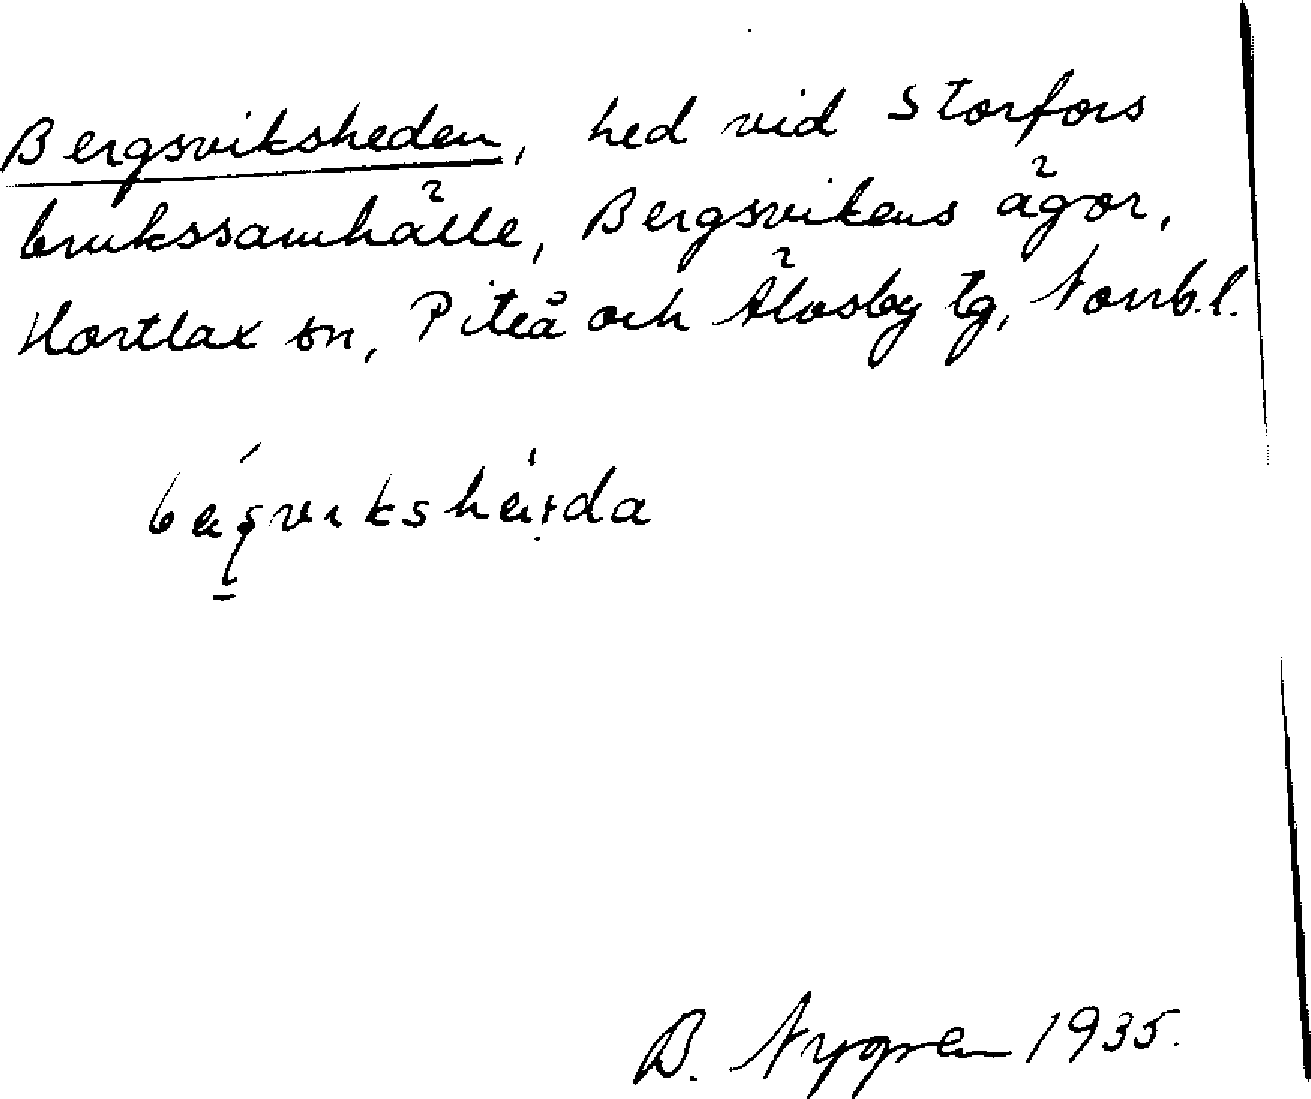 Bergsviksheden, hed vid Storfors
brukssamhälle, Bergsvikens ägor,
Hortlax sn, Piteå och Älvsby tg, Norrb.l.
B. Nygren 1935.